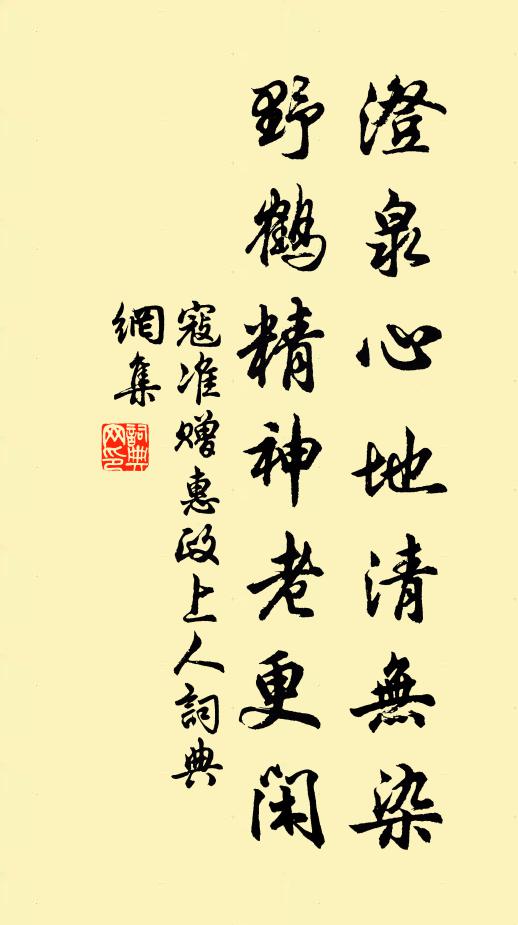 澄泉心地清無染
野鶴精神老更闲
寇准赠惠政上人詞典
網集
詞典
网印